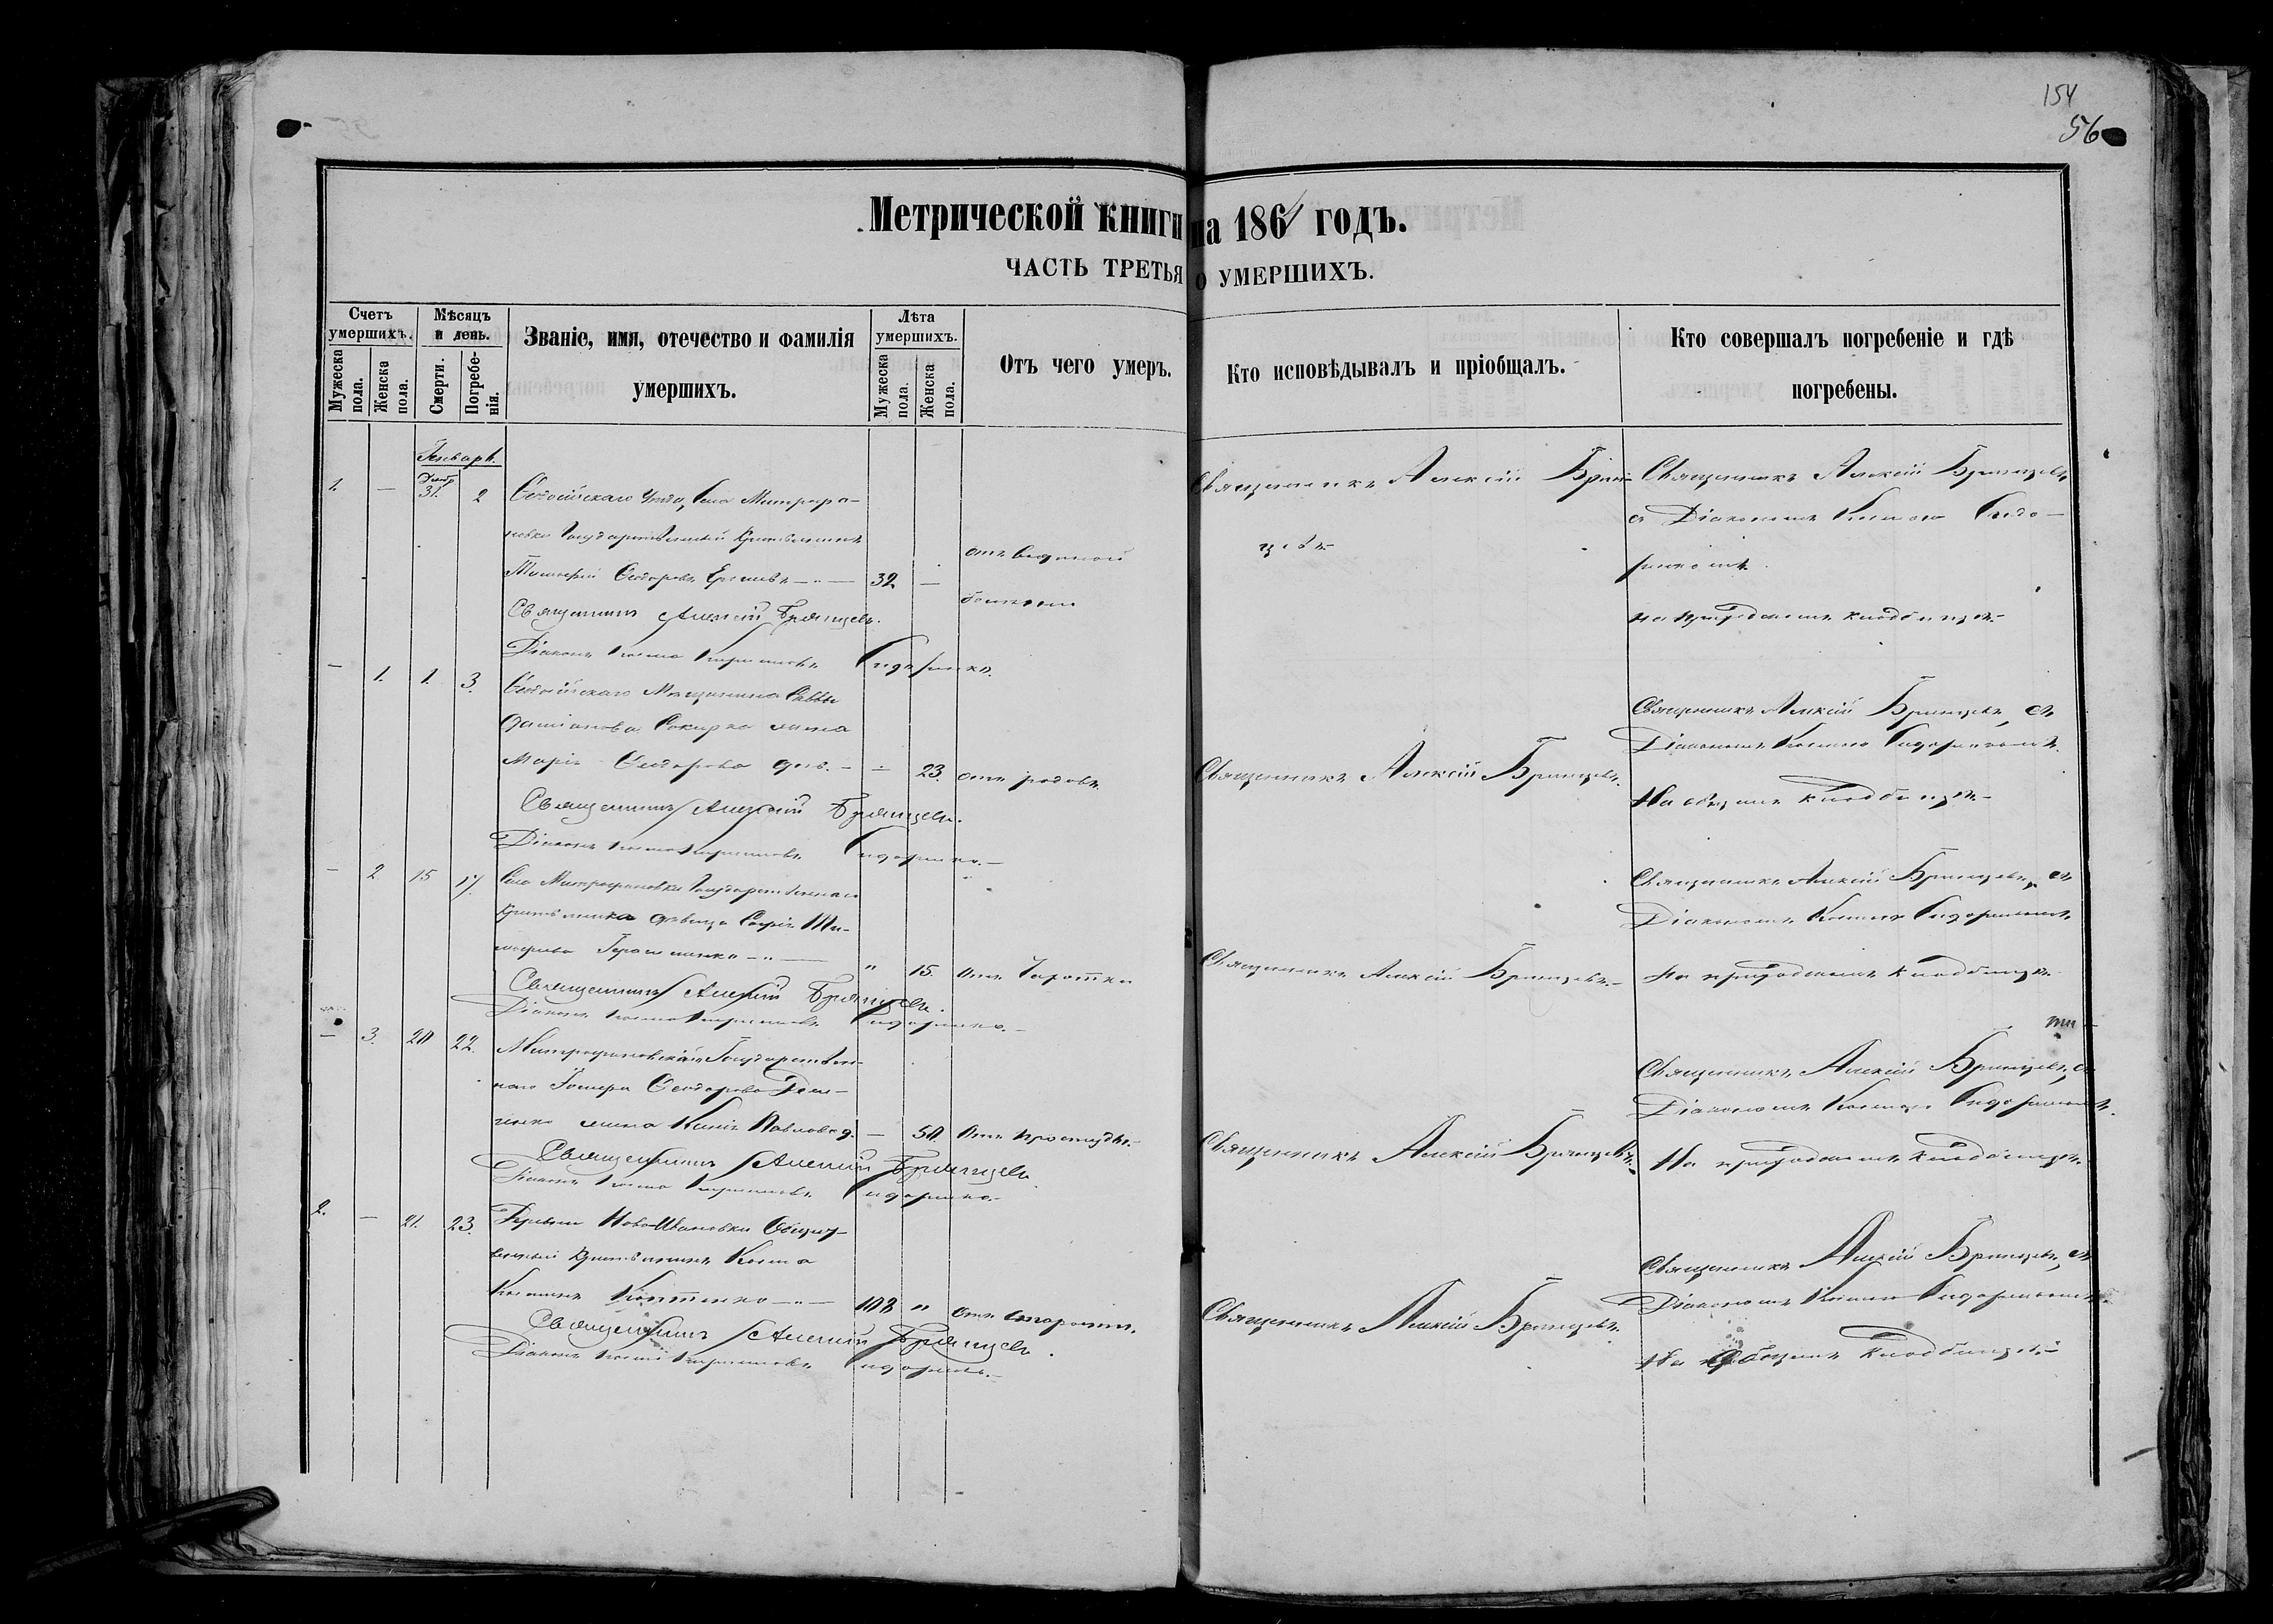 154
56
Метрической книги на 1864 годъ.
ЧАСТЬ ТРЕТЬЯ О УМЕРШИХЪ.
Счетъ умершихъ.
Мужеска пола.
Женска пола.
Мѣсяцъ и день.
Смерти.
Погребенія.
Званіе, имя, отечество и фамилія умершихъ.
Лѣта умершихъ.
Мужеска пола.
Женска пола.
Отъ чего умеръ.
Кто исповѣдывалъ и пріобщалъ.
Кто совершалъ погребеніе и гдѣ погребены.
Генварь.
1. — 31. 2
Ѳеодосійскаго Уѣзда, Села Митрофа-
новки Государственный Крестьянинъ
Тимофей Ѳеодоровъ 32 —
Священникъ Алексій Брянцевъ.
Діаконъ Косма Сидоренко.
Священникъ Алексій Брян-
цевъ
Священникъ Алексій Брянцевъ
съ Діакономъ Космою Сидо-
ренкомъ.
на приходскомъ кладбищѣ.
— 1. 1. 3.
Ѳеодосійскаго Мѣщанина Саввы
Даміанова жена
Марія Ѳеодорова 23. отъ родовъ.
Священникъ Алексій Брянцевъ.
Діаконъ Косма Сидоренко.
Священникъ Алексій Брянцевъ.
Священникъ Алексій Брянцевъ, съ
Діакономъ Космою Сидоренкомъ.
На общемъ кладбищѣ.
— 2 15 17.
Села Митрофановки Государственнаго
Крестьянина дѣвица Софія Ти-
мофеева 15. отъ
Священникъ Алексій Брянцевъ.
Діаконъ Косма Сидоренко.
Священникъ Алексій Брянцевъ.
Священникъ Алексій Брянцевъ, съ
Діакономъ Космою Сидоренкомъ
На приходскомъ кладбищѣ.
— 3. 20 22.
Государствен-
наго Ѳеодорова Дем-
ченко жена Павлова — 50 отъ простуды.
Священникъ Алексій Брянцевъ.
Діаконъ Косма Сидоренко.
Священникъ Алексій Брянцевъ.
Священникъ Алексій Брянцевъ, съ
Діакономъ Космою Сидоренкомъ.
На приходскомъ кладбищѣ.
2. — 21. 23.
Деревни Ново-Ивановки
Крестьянинъ Косма
Косминъ 108 " отъ старости.
Священникъ Алексій Брянцевъ.
Діаконъ Косма Сидоренко.
Священникъ Алексій Брянцевъ.
Священникъ Алексій Брянцевъ, съ
Діакономъ Космою Сидоренкомъ.
На общемъ кладбищѣ.